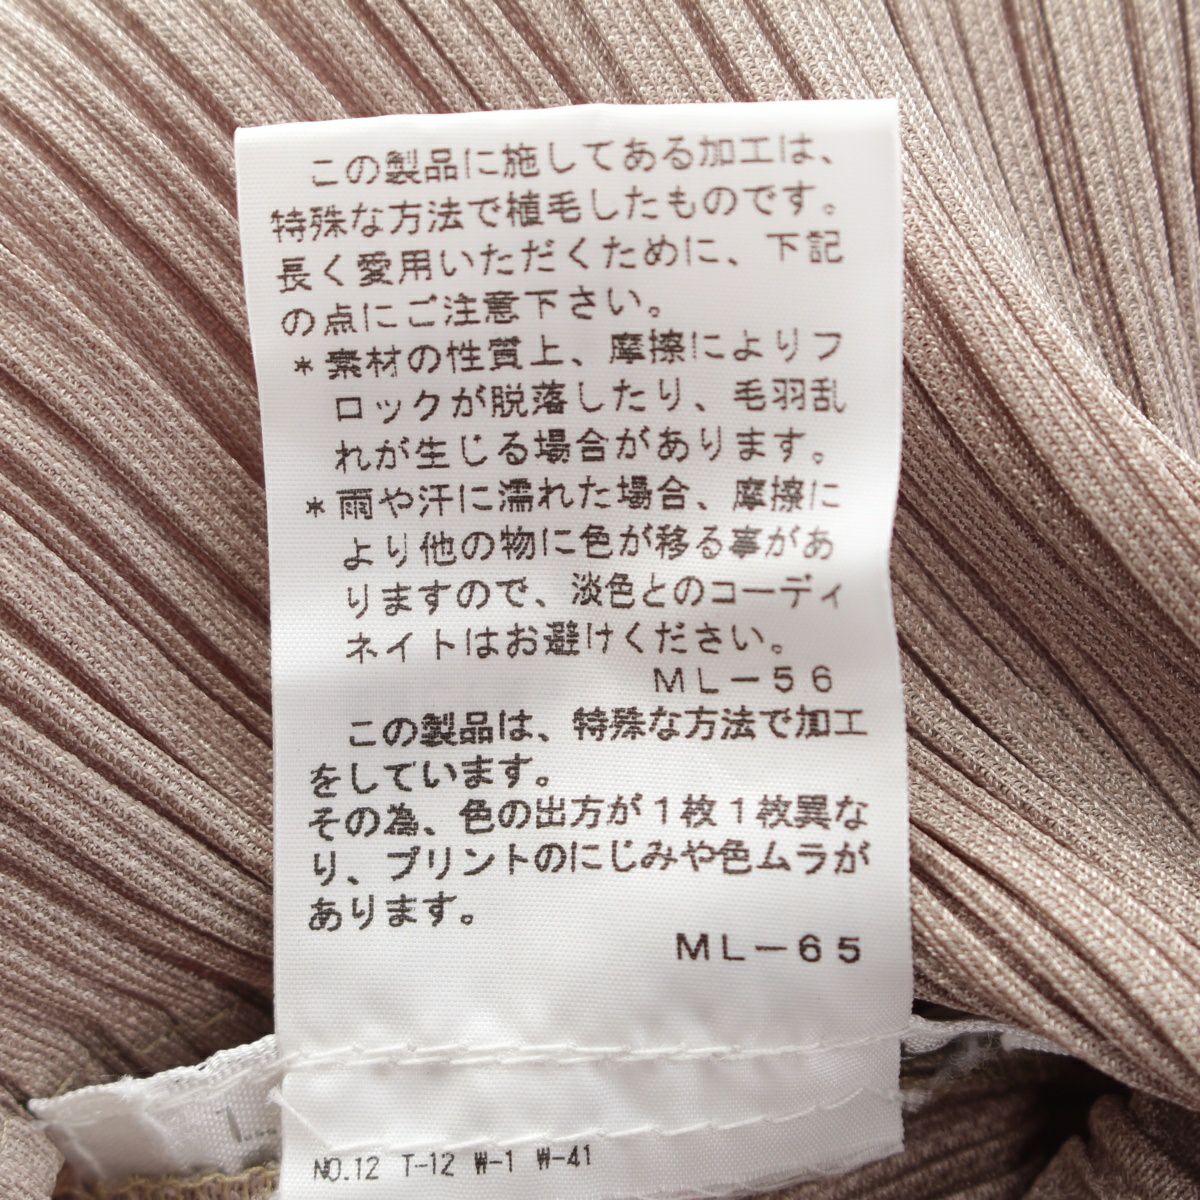 この製品に施してある加工は、
特殊な方法で植毛したものです。
長く愛用いただくために、下記
の点にご注意下さい。
＊素材の性質上、摩擦によりフ
ロックが脱落したり、毛羽乱
れが生じる場合があります。
＊雨や汗に濡れた場合、摩擦に
より他の物に色が移る事があ
りますので、淡色とのコーディ
ネイトはお避けください。
ML－56
この製品は、特殊な方法で加工
をしています。
その為、色の出方が１枚１枚異な
り、プリントのにじみや色ムラが
あります。
ML－65
NO.12 T-12 W-1 W-41